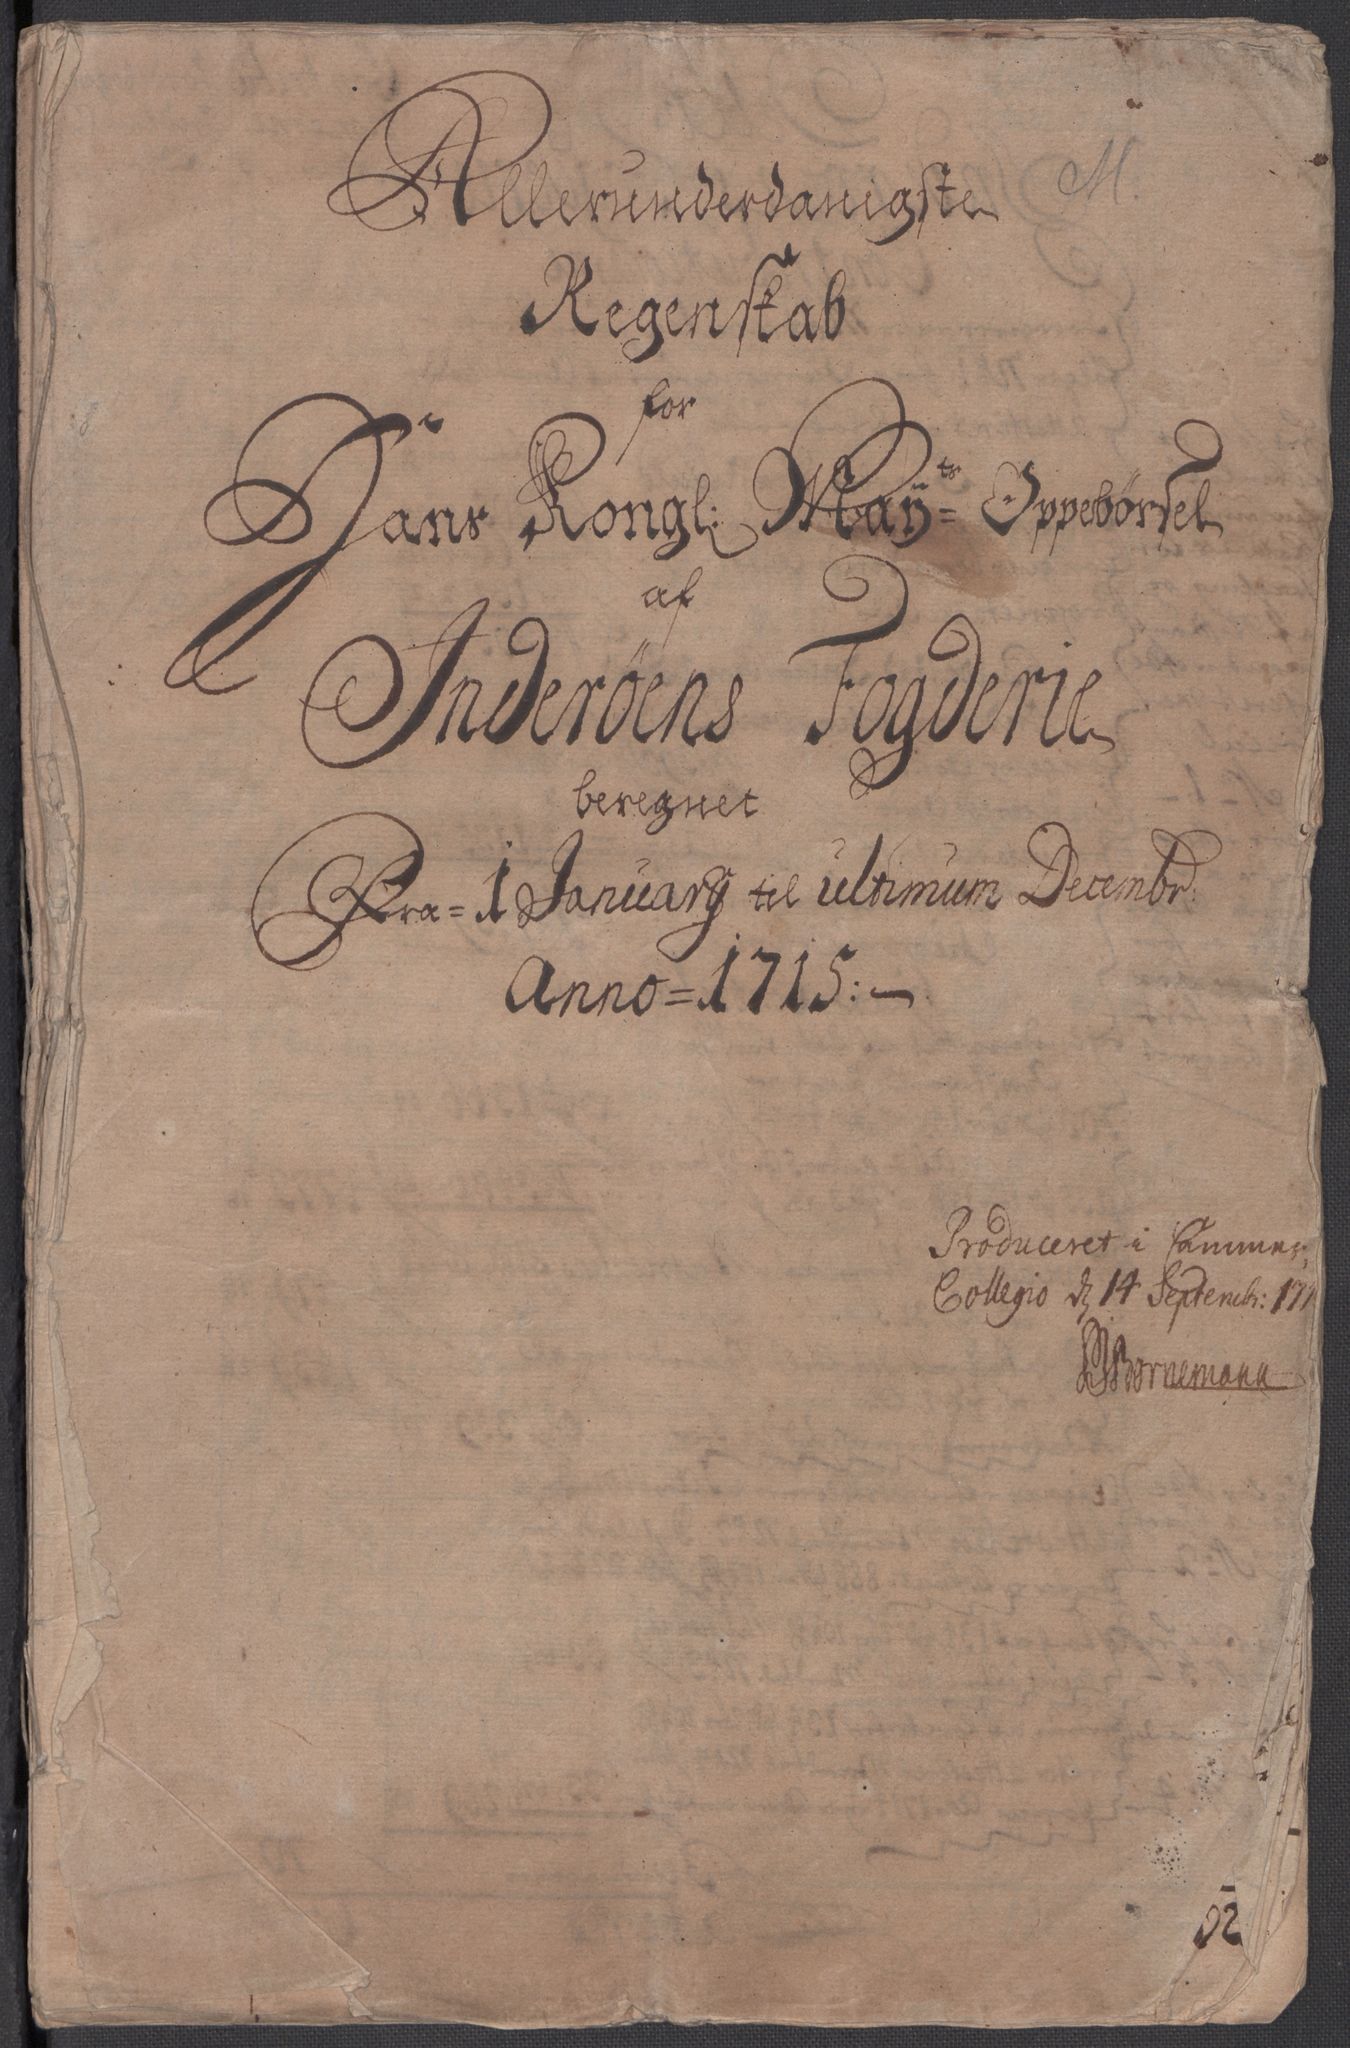 M.
Allerunderdanigste
Regenskab
for
Hans Kongl: Mayts= Oppebørsel
af
Inderöens Fogderie
beregnet
Fra= 1 January til ultimum Decembr:
Anno= 1715:
Produceret i Cammer
Collegio d 14 Septembr: 171
Bornemann
52